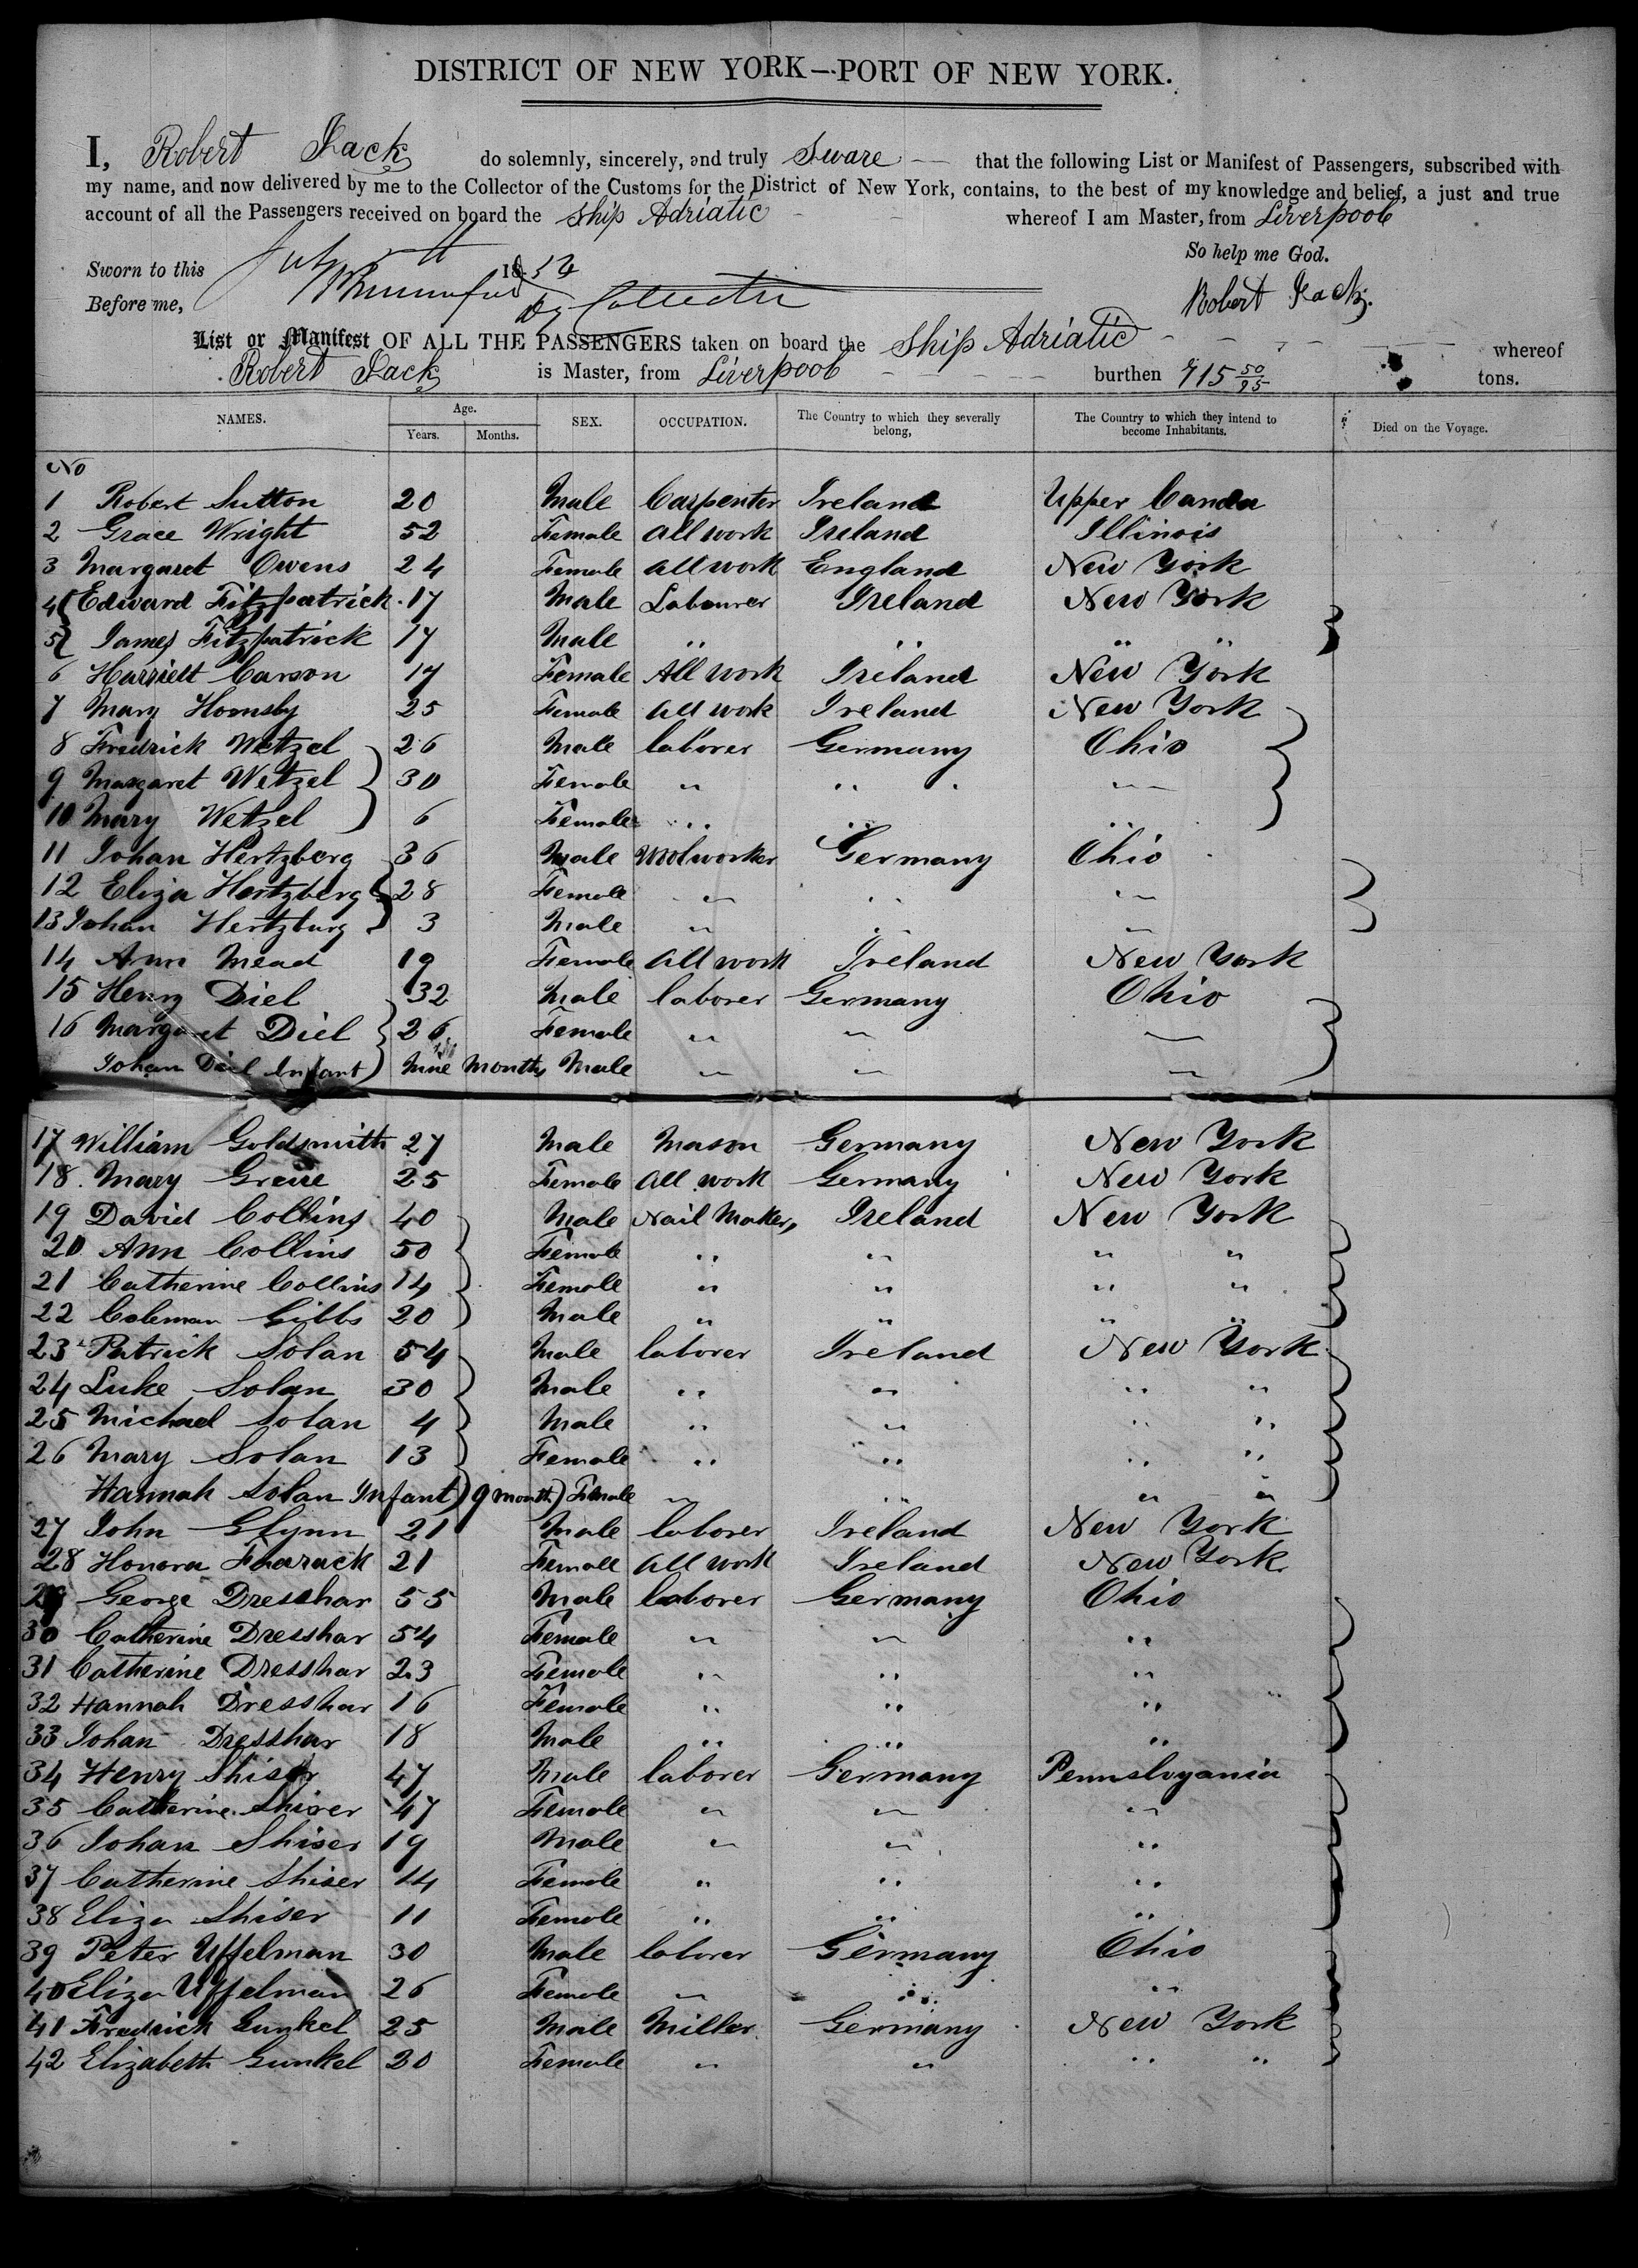 DISTRICT OF NEW YORK—PORT OF NEW YORK.
I, Robert Jack do solemnly, sincerely, and truly Sware that the following List or Manifest of Passengers, subscribed with
my name, and now delivered by me to the Collector of the Customs for the District of New York, contains, to the best of my knowledge and belief, a just and true
account of all the Passengers received on board the Ship Adriatic whereof I am Master, from Liverpool
So help me God.
Sworn to this 18
Before me, Robert Jack
List or Manifest OF ALL THE PASSENGERS taken on board the Ship Adriatic whereof
Robert Jack is Master, from Liverpool burthen 715 50/95 tons.
NAMES. Age. Years. Months. SEX. OCCUPATION. The Country to which they severally belong, The Country to which they intend to become Inhabitants. Died on the Voyage.
No
1 Robert Sutton 20 Male Carpenter Ireland Upper Canda
2 Grace Wright 52 Female all work Ireland Illinois
3 Margaret Owens 24 Female all work England New York
4 Edward Fitzpatrick 17 Male Labourer Ireland New York
5 James Fitzpatrick 17 Male " " " "
6 Harriett Carson 17 Female All work Ireland New York
7 Mary Hornsby 25 Female all work Ireland New York
8 Fredrick Wetzel 26 Male laborer Germany Ohio
9 Margaret Wetzel 30 Female " " "
10 Mary Wetzel 6 Female " " "
11 Johan Hertzberg 36 Male Germany Ohio
12 Eliza Hertzberg 28 Female " " "
13 Johan Hertzburg 3 Male " " "
14 Ann Mead 19 Female all work Ireland New York
15 Henry Diel 32 Male laborer Germany Ohio
16 Margaret Diel 26 Female " " "
Johan Diel Infant Nine Months Male " " "
17 William Goldsmith 27 Male Mason Germany New York
18 Mary Greue 25 Female all work Germany New York
19 David Collins 40 Male Nail Maker, Ireland New York
20 Ann Collins 50 Female " " " "
21 Catherine Collins 14 Female " " " "
22 Coleman Gibbs 20 Male " " " "
23 Patrick Solan 54 Male laborer Ireland New York
24 Luke Solan 30 Male " " " "
25 Michael Solan 4 Male " " " "
26 Mary Solan 13 Female " " " "
Hannah Solan Infant 9 month Female " " " "
27 John Glynn 21 Male laborer Ireland New York
28 Honora 21 Female all work Ireland New York
29 George Dresshar 55 Male laborer Germany Ohio
30 Catherine Dresshar 54 Female " " "
31 Catherine Dresshar 23 Female " " "
32 Hannah Dresshar 16 Female " " "
33 Johan Dresshar 18 Male " " "
34 Henry Shiser 47 Male laborer Germany Pennslvyania
35 Catherine Shiser 47 Female " " "
36 Johan Shiser 19 Male " " "
37 Catherine Shiser 14 Female " " "
38 Eliza Shiser 11 Female " " "
39 Peter Uffelman 30 Male laborer Germany Ohio
40 Eliza Uffelman 26 Female " " "
41 Fredrick Gunkel 25 Male Miller Germany New York
42 Elizabeth Gunkel 20 Female " " " "